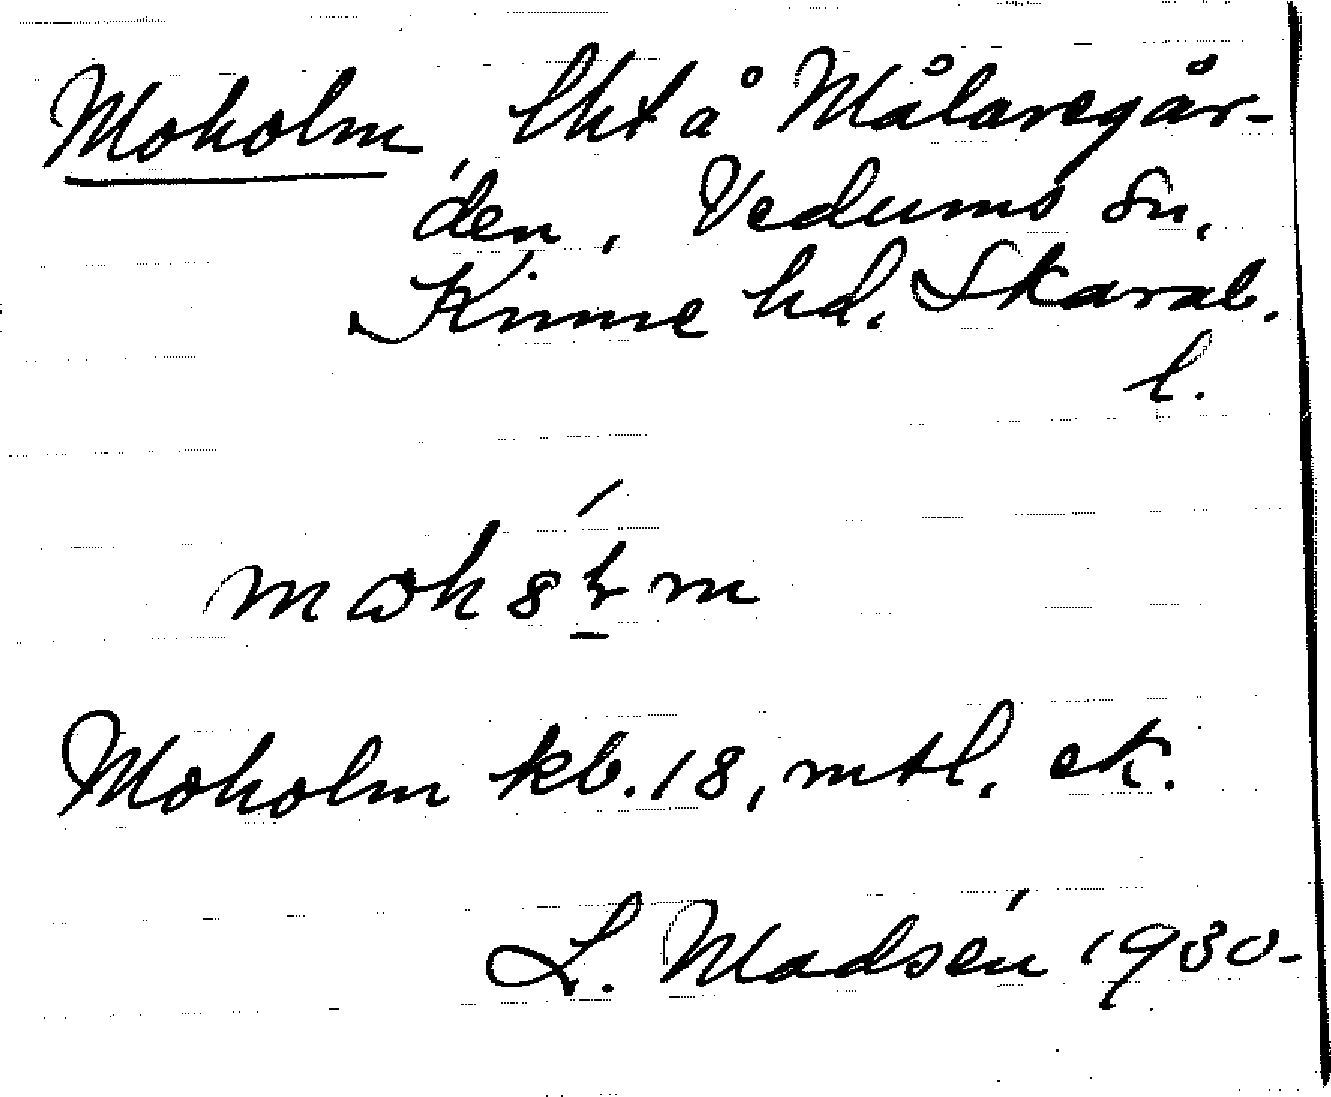 Moholm, lht å Målaregår-
den, Vedums sn,
Kinne hd. Skarab.
l.
Moholm kb. 18, mtl. ek.
L. Madsén 1930-